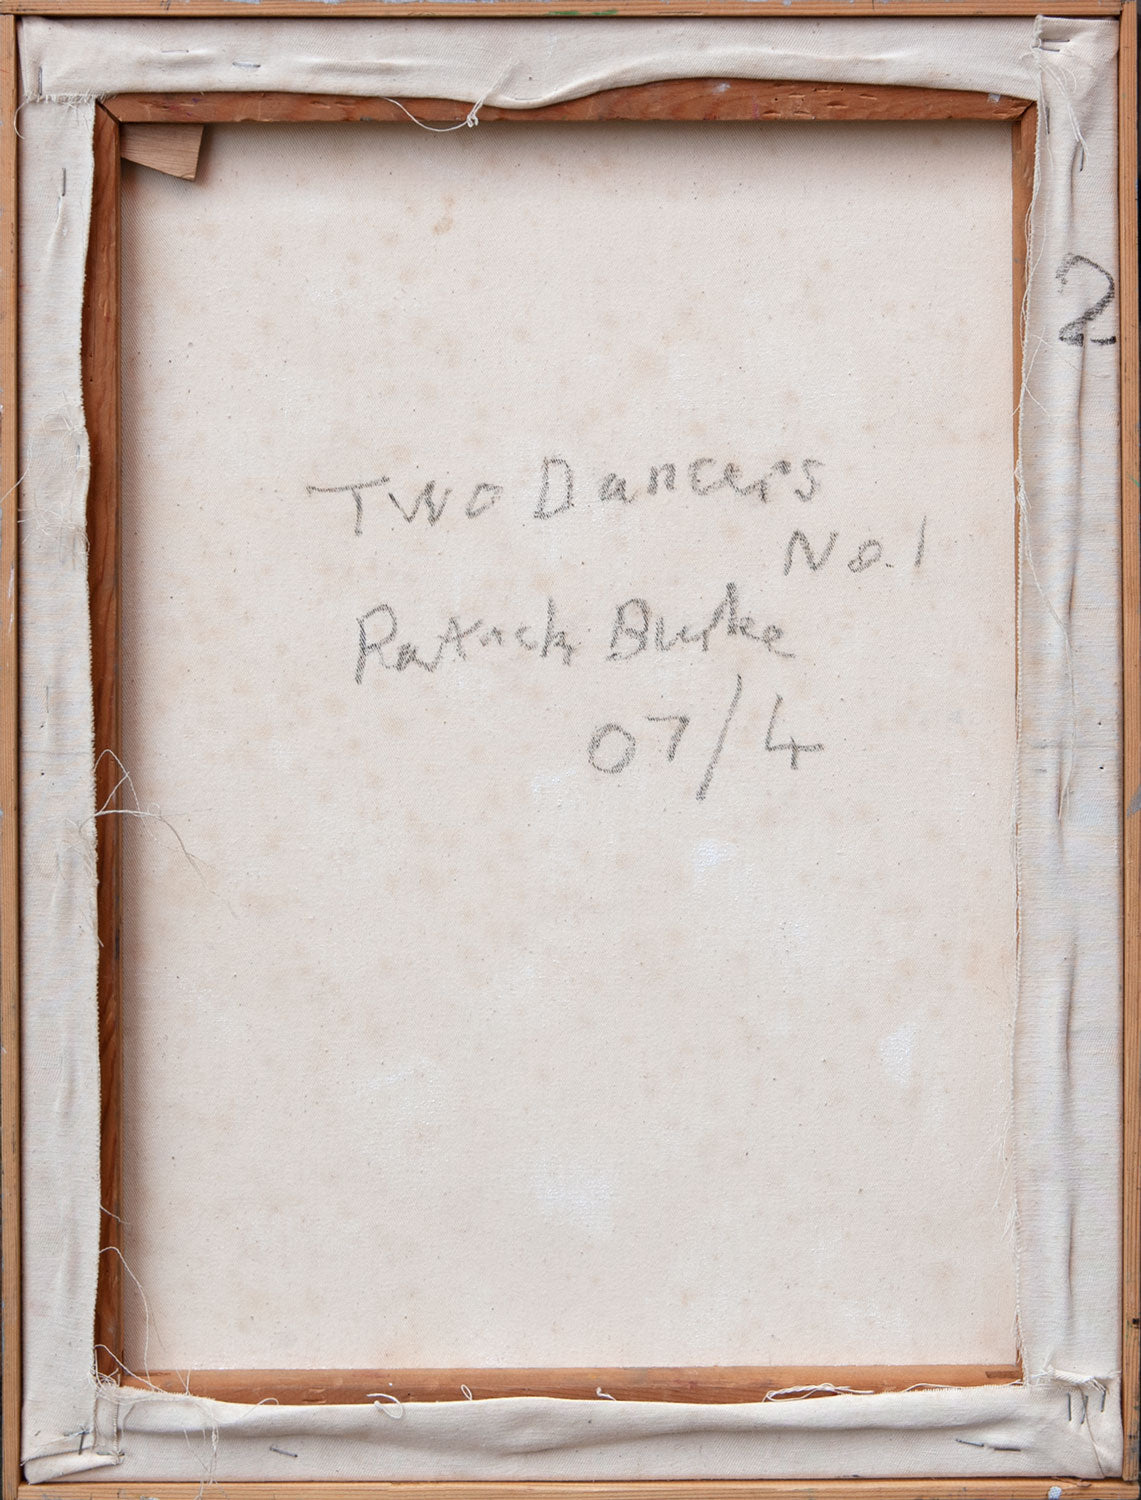 Two Dancers
No. 1
Patrick Burke
07/4
2